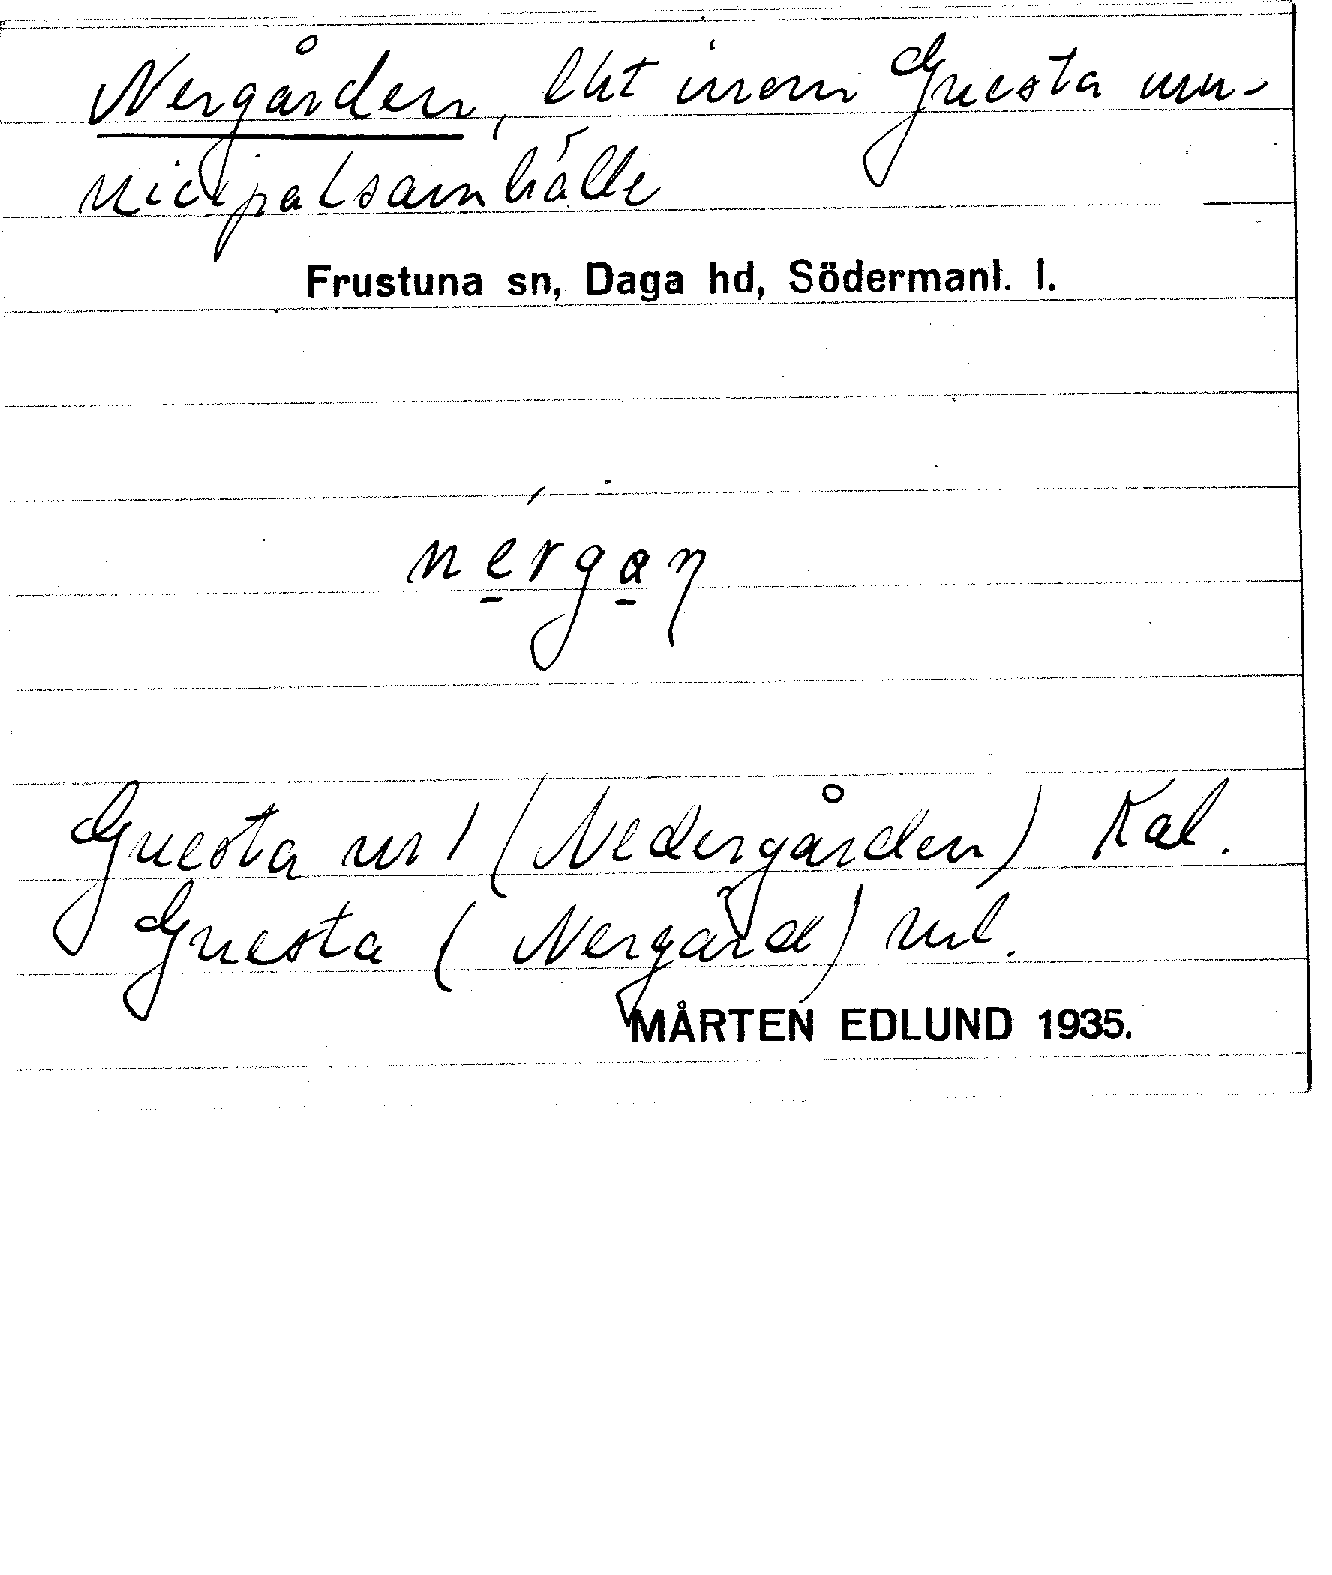 Nergården, lht inom Gnesta mu-
nicipalsamhälle
Frustuna sn, Daga hd, Södermanl. l.
nérgan
Gnesta nr 1 (Nedergården) Kal.
Gnesta (Nergård)
MÅRTEN EDLUND 1935.